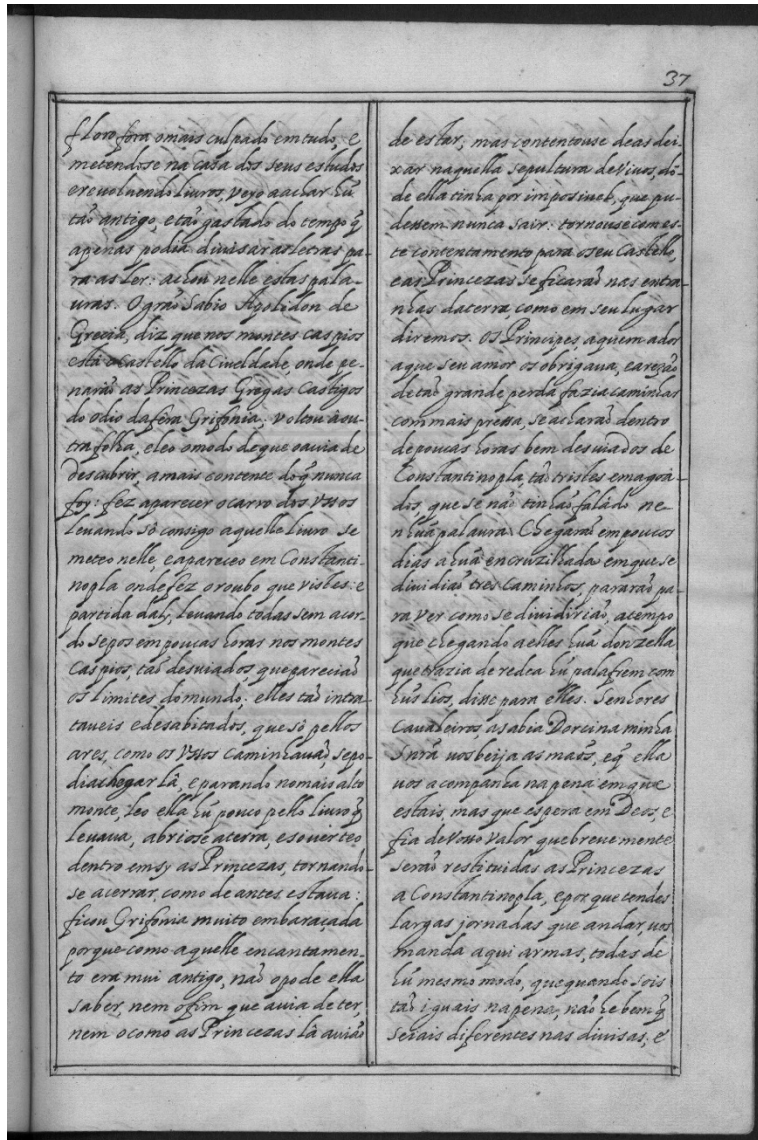 37
floro fora o mais culpado em tudo, e
metendose na casa dos seus estudos
e reuoluendo liuros, veyo a achar hũ
tão antigo, e tão gastado do tempo q̃
apenas podia diuisar as letras pa-
ra as ler: achou nelle estas pala-
uras. O grão Sabio Agelidon de
Grecia, diz que nos montes caspios
està o Castello da Crueldade, onde pe-
narão as Princezas Gregas castigos
do odio da fèra Grifonia; voltou à ou-
tra folha, e leo o modo de que o auia de
descubrir, a mais contente do q̃ nunca
foy: fez aparecer o carro dos Vssos
leuando sò consigo aquelle liuro se
meteo nelle, e apareceo em Constanti-
nopla onde fez o roubo que vistes: e
partida daly, leuando todas sem acor-
do se pos em poucas horas nos montes
Caspios, tão desuiados, que parecião
os limites do mundo; e elles tão intra-
taueis e desabitados, que sò pellos
ares, como os Vssos caminhauão, se po-
dia chegar là, e parando no mais alto
monte, leo ella hũ pouco pello liuro q̃
leuaua, abriose a terra, e souerteo
dentro em sy as Princezas, tornando-
se a cerrar, como de antes estaua:
ficou Grifonia muito embaraçada
porque como aquelle encantamen-
to era mui antigo, não o pode ella
saber, nem o fim que auia de ter,
nem o como as Princezas là auião
de estar, mas contentouse de as dei-
xar naquella sepultura de viuos, dõ-
de ella tinha por imposiuel, que pu-
dessem nunca sair: tornouse com es-
te contentamento para o seu Castello,
e as Princezas se ficarão nas entra-
nhas da terra, como em seu lugar
diremos. Os Principes, a quem a dor
a que seu amor os obrigaua, e a rezão
de tão grande perda fazia caminhar
com mais pressa, se acharão dentro
de poucas horas bem desuiados de
Constantinopla, tão tristes e magoa-
dos, que se não tinhão falàdo ne-
nhũa palaura. Chegarão em poucos
dias a hũa encruzilhada em que se
diuidião tres caminhos, pararão pa-
ra ver como se diuidirião, a tempo
que chegando a elles hũa donzella
que trazia de redea hũ palafrem com
hũs lios, disse para elles. Senhores
Caualeiros, a sabia Dorcina minha
Snrã uos beija as mãos, e q̃ ella
uos acompanha na pena em que
estais, mas que espera em Deos, e
fia de Vosso valor que breuemente
serão restituidas as Princezas
a Constantinopla, e por que tendes
largas jornadas que andar, uos
manda aqui armas, todas de
hũ mesmo modo, que quando sois
tão iguais na pena, não he bem q̃
sejais diferentes nas diuisas; e